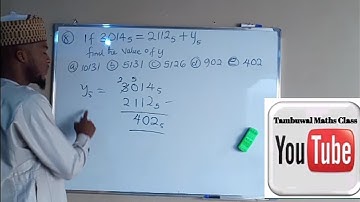 If 3014₅ = 2112₅ + y₅
find the value of y
ⓐ 10131 ⓑ 5131 ⓒ 5126 ⓓ 902 ⓔ 402
2 5
y₅ = 3014₅
2112₅ −
402₅
Tambuwal Maths Class
YouTube